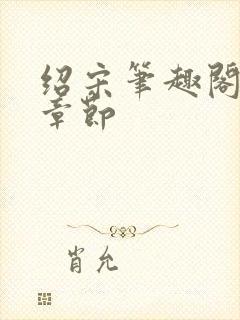 绍宋筆趣閣
章節
肖允